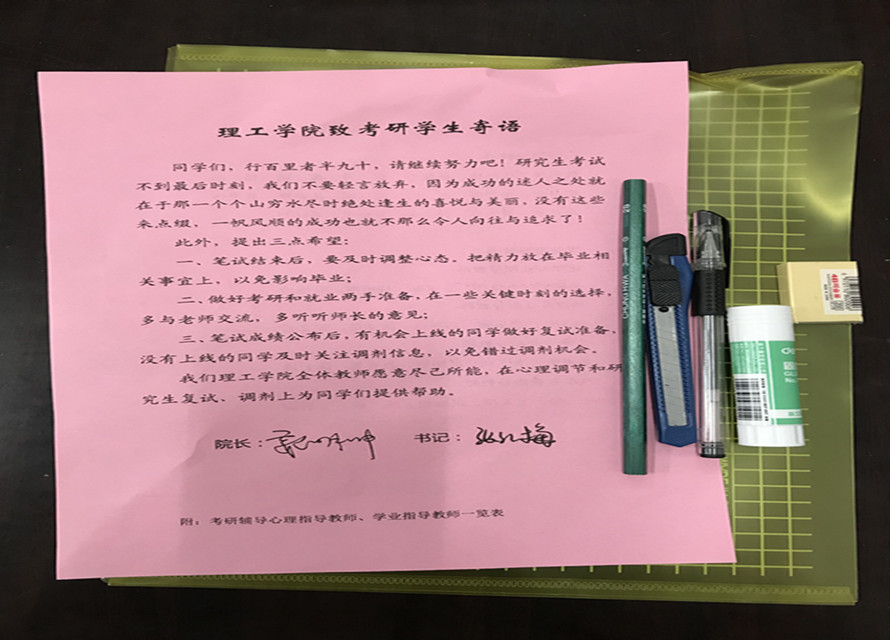 理工学院致考研学生寄语
同学们，行百里者半九十，请继续努力吧！研究生考试
不到最后时刻，我们不要轻言放弃，因为成功的迷人之处就
在于那一个个山穷水尽时绝处逢生的喜悦与美丽，没有这些
来点缀，一帆风顺的成功也就不那么令人向往与追求了！
此外，提出三点希望：
一、笔试结束后，要及时调整心态，把精力放在毕业相
关事宜上，以免影响毕业；
二、做好考研和就业两手准备，在一些关键时刻的选择，
多与老师交流，多听听师长的意见；
三、笔试成绩公布后，有机会上线的同学做好复试准备，
没有上线的同学及时关注调剂信息，以免错过调剂机会。
我们理工学院全体教师愿意尽己所能，在心理调节和研
究生复试、调剂上为同学们提供帮助。
院长： 书记：
附：考研辅导心理指导教师、学业指导教师一览表